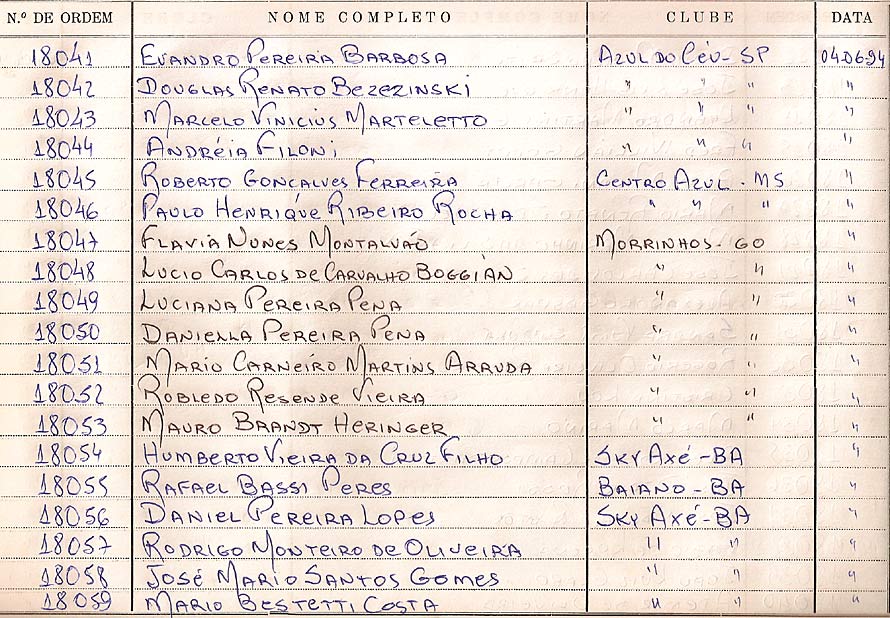 N.º DE ORDEM NOME COMPLETO CLUBE DATA
18041 EVANDRO PEREIRA BARBOSA AZUL DO CÉU - SP 04.06.94
18042 DOUGLAS RENATO BEZEZINSKI " " " "
18043 MARCELO VINICIUS MARTELETTO " " " "
18044 ANDRÉIA FILONI " " " "
18045 ROBERTO GONCALVES FERREIRA CENTRO AZUL - MS "
18046 PAULO HENRIQUE RIBEIRO ROCHA " " " "
18047 FLAVIA NUNES MONTALVÃO MORRINHOS - GO "
18048 LUCIO CARLOS DE CARVALHO BOGGIAN " " "
18049 LUCIANA PEREIRA PENA " " "
18050 DANIELLA PEREIRA PENA " " "
18051 MARIO CARNEIRO MARTINS ARRUDA " " "
18052 ROBLEDO RESENDE VIEIRA " " "
18053 MAURO BRANDT HERINGER " " "
18054 HUMBERTO VIEIRA DA CRUZ FILHO SKY AXÉ - BA "
18055 RAFAEL BASSI PERES BAIANO - BA "
18056 DANIEL PEREIRA LOPES SKY AXÉ - BA "
18057 RODRIGO MONTEIRO DE OLIVEIRA " " "
18058 JOSÉ MARIO SANTOS GOMES " " "
18059 MARIO BESTETTI COSTA " " "